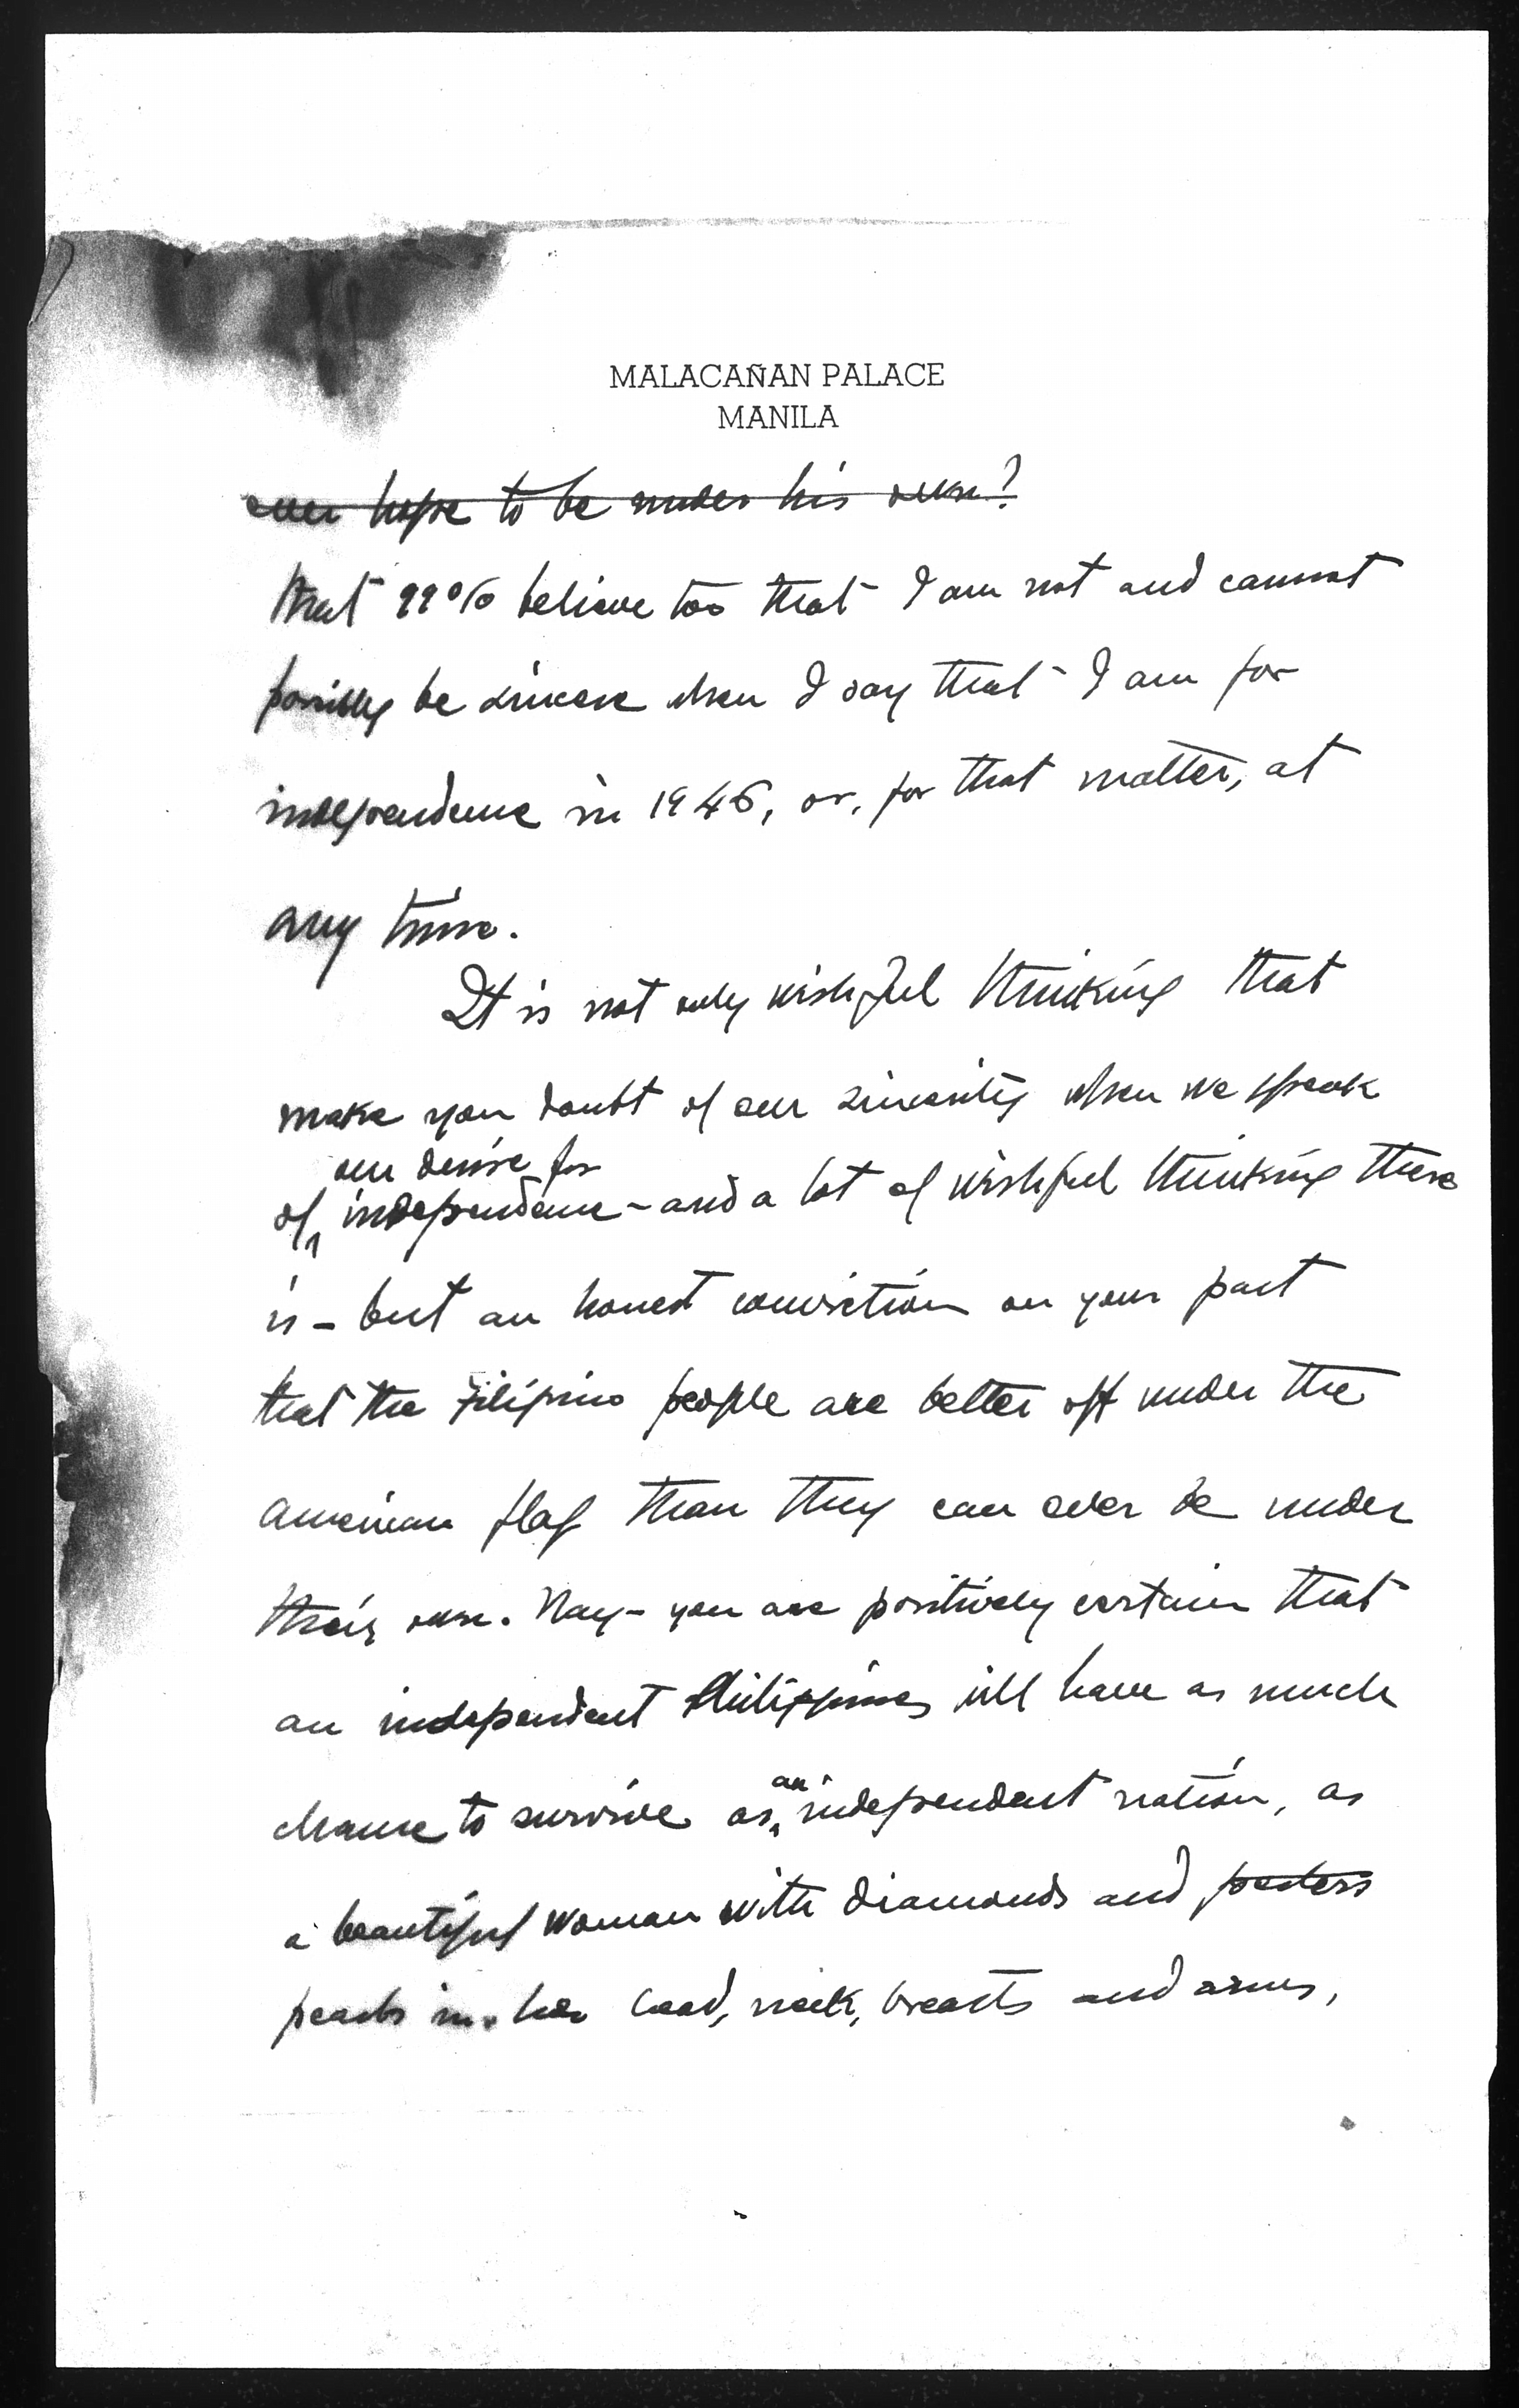 MALACAÑAN PALACE
MANILA
ever hope to be under his own?
that 99% believe too that I am not and cannot
possibly be sincere when I say that I am for
independence in 1946, or, for that matter, at
any time.
It is not only wishful thinking that
make you doubt of our sincerity when we speak
our desire for
of independence - and a lot of wishful thinking there
is - but an honest conviction on your part
that the Filipino people are better off under the
American flag than they can ever be under
their own. Nay - you are positively certain that
an independent Philippines will have as much
an
chance to survive as independent nation, as
a beautiful woman with diamonds and
pearls in her head, neck, breasts and arms,